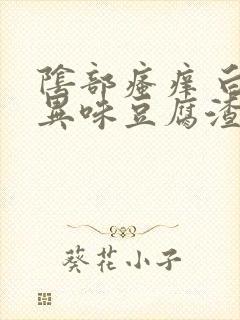 陰部瘙痒白
異味豆腐渣
葵花小子